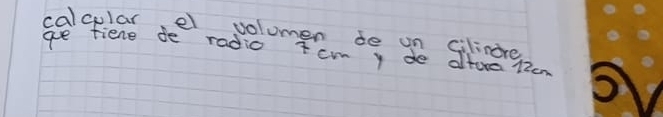 calcular el volumen de un cilindro
que tiene de radio 7 cm y de altura 12cm